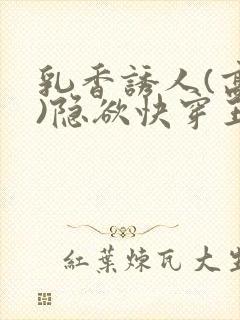 乳香誘人(高
)隐欲快穿玉
紅葉煉瓦大生